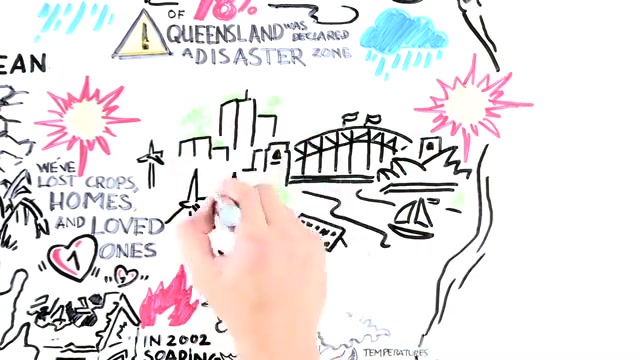 OF 78%
QUEENSLAND WAS DECLARED
A DISASTER ZONE
EAN
WE'VE
LOST CROPS,
HOMES,
AND LOVED
ONES
IN 2002
SOARING
TEMPERATURES